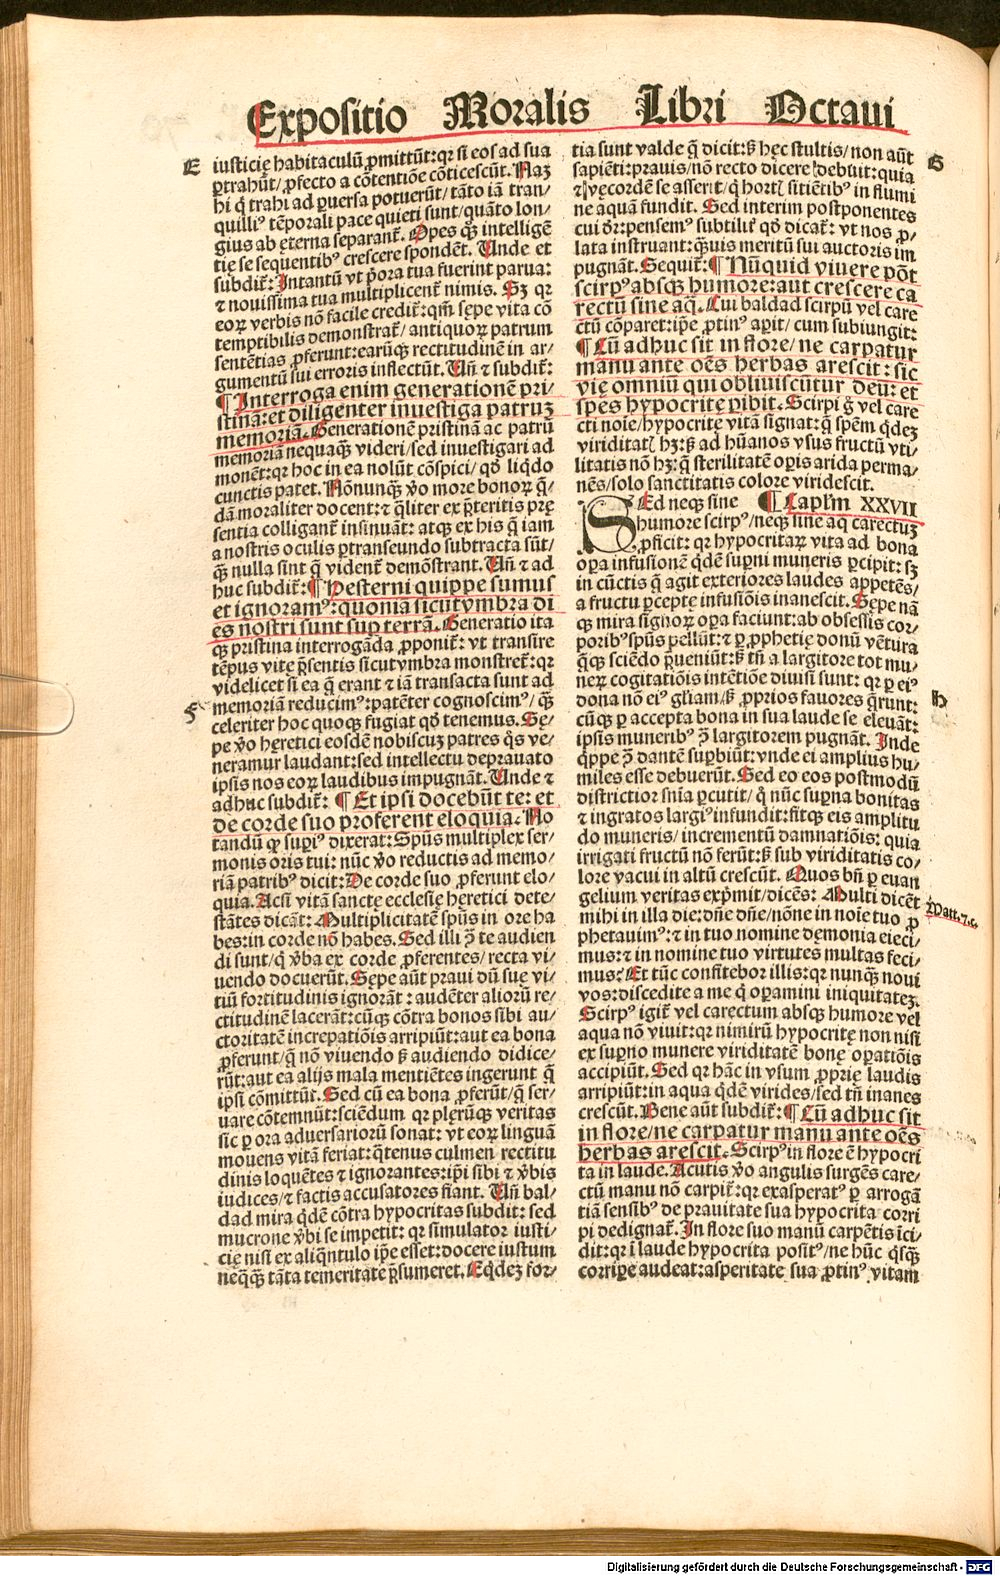 Expositio Moralis Libri Octaui
E
iusticię habitaculū ꝓmittūt: qꝛ si eos ad sua
ꝑtrahūt / ꝓfecto a cōtentiōe cōticescūt. Naꝫ
hi q̇ trahi ad ꝑuersa potuerūt / tāto iā tran⸗
quilliꝰ tēporali pace quieti sunt / quāto lon⸗
gius ab ęterna separant᷑. Opes qͣꝫ intelligē
tię se sequentibꝰ crescere spondēt. Unde et
subdit᷑: Intantū vt p̄ora tua fuerint parua:
⁊ nouissima tua multiplicent᷑ nimis. Sꝫ qꝛ
eoꝝ verbis nō facile credit᷑: qm̄ sępe vita cō
temptibilis demonstrat᷑ / antiquoꝝ patrum
sentētias ꝓferunt: earūqꝫ rectitudinē in ar⸗
gumentū sui erroris inflectūt. Uñ ⁊ subdit᷑:
¶ Interroga enim generationē pri⸗
stinā: et diligenter inuestiga patruꝫ
memoriā. Generationē pristinā ac patrū
memoriā nequaqͣꝫ videri / sed inuestigari ad
monēt: qꝛ hoc in ea nolūt cōspici / qḋ liq̇do
cunctis patet. Nōnunqͣꝫ v̊o more bonoꝝ q̄⸗
dā moraliter docent: ⁊ q̄liter ex p̄teritis prę
sentia colligant᷑ insinuāt: atqꝫ ex his q̄ iam
a nostris oculis ꝑtranseundo subtracta sūt /
qͣꝫ nulla sint q̄ vident᷑ demōstrant. Uñ ⁊ ad
huc subdit᷑: ¶ Hesterni quippe sumus
et ignoramꝰ: quoniā sicut vmbra di
es nostri sunt suꝑ terrā. Generatio ita
qꝫ pristina interrogāda ꝓponit᷑: vt transire
tēpus vitę p̄sentis sicut vmbra monstret᷑: qꝛ
videlicet si ea q̄ erant ⁊ iā transacta sunt ad
F
memoriā reducimꝰ: patēter cognoscimꝰ / qͣꝫ
celeriter hoc quoqꝫ fugiat qḋ tenemus. Sę⸗
pe v̊o hęretici eosdē nobiscuꝫ patres q̊s ve⸗
neramur laudant: sed intellectu deprauato
ipsis nos eoꝝ laudibus impugnāt. Unde ⁊
adhuc subdit᷑: ¶ Et ipsi docebūt te: et
de corde suo proferent eloquia. No
tandū qꝙ supiꝰ dixerat: Spūs multiplex ser⸗
monis oris tui: nūc v̊o reductis ad memo⸗
riā patribꝰ dicit: De corde suo ꝓferunt elo⸗
quia. Acsi vitā sanctę ecclesię hęretici dete⸗
stātes dicāt: Multiplicitatē spūs in ore ha
bes: in corde nō habes. Sed illi ꝯ̄ te audien
di sunt / q̇ v̊ba ex corde ꝓferentes / recta vi⸗
uendo docuerūt. Sępe aūt praui dū suę vi⸗
tiū fortitudinis ignorāt: audēter aliorū re⸗
ctitudinē lacerāt: cūqꝫ cōtra bonos sibi au⸗
ctoritatē increpatiōis arripiūt: aut ea bona
ꝓferunt / q̄ nō viuendo ß audiendo didice⸗
rūt: aut ea alijs mala mentiētes ingerunt q̄
ipsi cōmittūt. Sed cū ea bona ꝓferūt / q̄ ser⸗
uare cōtemnūt: sciēdum qꝛ plęrūqꝫ veritas
sic ꝑ ora aduersariorū sonat: vt eoꝝ linguā
mouens vitā feriat: q̄tenus culmen rectitu
dinis loquētes ⁊ ignorantes: ip̄i sibi ⁊ v̊bis
iudices / ⁊ factis accusatores fiant. Uñ bal⸗
dad mira q̇dē cōtra hypocritas subdit: sed
mucrone v̊bi se impetit: qꝛ simulator iusti⸗
cię nisi ex aliq̄ntulo ip̄e esset: docere iustum
neq̄qͣꝫ tāta temeritate p̄sumeret. Eq̇deꝫ for⸗
G
tia sunt valde q̄ dicit: ß hęc stultis / non aūt
sapiēti: prauis / nō recto dicere debuit: quia
⁊ vęcordē se asserit / q̇ hortꝭ sitiētibꝰ in flumi
ne aquā fundit. Sed interim postponentes
cui d̄r: pensemꝰ subtilit᷑ qḋ dicat᷑: vt nos ꝓ⸗
lata instruant: qͣꝫuis meritū sui auctoris im
pugnāt. Sequit᷑: ¶ Nūquid viuere pōt
scirpꝰ absqꝫ humore: aut crescere ca
rectū sine aq̄. Cui baldad scirpū vel care
ctū cōparet: ip̄e ꝓtinꝰ aꝑit / cum subiungit:
¶ Cū adhuc sit in flore / ne carpatur
manu ante oēs herbas arescit: sic
vię omniū qui obliuiscūtur deū: et
spes hypocritę ꝑibit. Scirpi g̊ vel care
cti noīe / hypocritę vitā signat: q̄ spēm q̇deꝫ
viriditatꝭ hꝫ: ß ad hūanos vsus fructū vti⸗
litatis nō hꝫ: q̄ sterilitatē oꝑis arida perma⸗
nēs / solo sanctitatis colore viridescit.
SEd neqꝫ sine ¶ Caplm XXVII
humore scirpꝰ / neqꝫ sine aq̄ carectuꝫ
ꝓficit: qꝛ hypocritaꝝ vita ad bona
oꝑa infusionē q̇dē suꝑni muneris ꝑcipit: sꝫ
in cūctis q̄ agit exteriores laudes appetēs /
a fructu ꝑceptę infusiōis inanescit. Sępe nā
qꝫ mira signoꝝ oꝑa faciunt: ab obsessis cor⸗
poribꝰ spūs pellūt: ⁊ ꝑ ꝓphetię donū vētura
q̄qꝫ sciēdo p̄ueniūt: ß tñ a largitore tot mu⸗
neꝝ cogitatiōis intētiōe diuisi sunt: qꝛ ꝑ eiꝰ
H
dona nō eiꝰ glīam / ß ꝓprios fauores q̄runt:
cūqꝫ ꝑ accepta bona in sua laude se eleuāt:
ipsis muneribꝰ ꝯ̄ largitorem pugnāt. Inde
q̇ppe ꝯ̄ dantē suꝑbiūt: vnde ei amplius hu⸗
miles esse debuerūt. Sed eo eos postmodū
districtior snīa ꝑcutit / q̊ nūc suꝑna bonitas
⁊ ingratos largiꝰ infundit: fitqꝫ eis amplitu
do muneris / incrementū damnatiōis: quia
irrigati fructū nō ferūt: ß sub viriditatis co⸗
lore vacui in altū crescūt. Quos bn̄ ꝑ euan
gelium veritas exp̄mit / dicēs: Multi dicēt
Matt. 7. c.
mihi in illa die: dn̄e dn̄e / nōne in noīe tuo ꝓ
phetauimꝰ: ⁊ in tuo nomine dęmonia eieci⸗
mus: ⁊ in nomine tuo virtutes multas feci⸗
mus? Et tūc confitebor illis: qꝛ nunqͣꝫ noui
vos: discedite a me q̇ oꝑamini iniquitateꝫ.
Scirpꝰ igit᷑ vel carectum absqꝫ humore vel
aqua nō viuit: qꝛ nimirū hypocritę non nisi
ex suꝑno munere viriditatē bonę oꝑatiōis
accipiūt. Sed qꝛ hāc in vsum ꝓprię laudis
arripiūt: in aqua q̇dē virides / sed tñ inanes
crescūt. Bene aūt subdit᷑: ¶ Cū adhuc sit
in flore / ne carpatur manu ante oēs
herbas arescit. Scirpꝰ in flore ē hypocri
ta in laude. Acutis v̊o angulis surgēs care⸗
ctū manu nō carpit᷑: qꝛ exasperatꝰ ꝑ arrogā
tiā sensibꝰ de prauitate sua hypocrita corri
pi dedignat᷑. In flore suo manū carpētis īci⸗
dit: qꝛ ī laude hypocrita positꝰ / ne hūc q̇sqͣꝫ
corriꝑe audeat: asperitate sua ꝓtinꝰ vitam
Digitalisierung gefördert durch die Deutsche Forschungsgemeinschaft - DFG